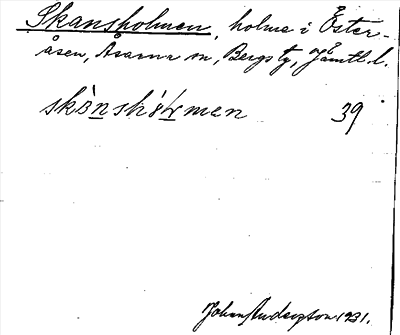 Skansholmen, holme i Öster-
åsen, Åsarne sn, Bergs tg, Jämtl. l.
skànshólmen 39
Johan Anderzson 1931.